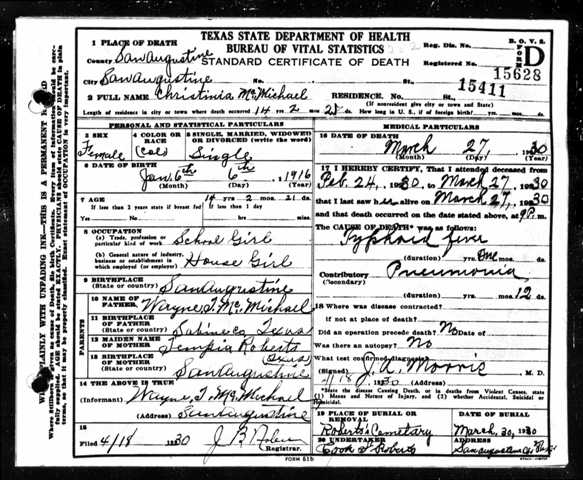 TEXAS STATE DEPARTMENT OF HEALTH
BUREAU OF VITAL STATISTICS
STANDARD CERTIFICATE OF DEATH
B. O. V. S.
FORM D
1 PLACE OF DEATH
County San Augustine
City San Augustine No.
Reg. Dis. No.
Registered No.
15628
15411
2 FULL NAME Christinia McMichael RESIDENCE. No.
(If nonresident give city or town and State)
Length of residence in city or town where death occurred 14 2 How long in U. S., if of foreign birth?
PERSONAL AND STATISTICAL PARTICULARS
3 SEX
Female
4 COLOR OR RACE
(Col)
5 SINGLE, MARRIED, WIDOWED OR DIVORCED (write the word)
Single
6 DATE OF BIRTH
Jan. 6th 6th, 1916
(Month) (Day) (Year)
7 AGE 14 yrs. 2 mos. 21 ds.
If less than 2 years state if breast fed If less than 1 day
Yes No hrs. min.
8 OCCUPATION
(a) Trade, profession or particular kind of work School Girl
(b) General nature of industry, business or establishment in which employed (or employer) House Girl
9 BIRTHPLACE
(State or country) San Augustine
PARENTS
10 NAME OF FATHER Wayne T. McMichael
11 BIRTHPLACE OF FATHER
(State or country) Sabine Co, Texas
12 MAIDEN NAME OF MOTHER Tempia Roberts
13 BIRTHPLACE OF MOTHER
(State or country) San Augustine (Texas)
14 THE ABOVE IS TRUE
(Informant) Wayne, T. McMichael
(Address) San Augustine
15
Filed 4/18 1930 J B
Registrar.
MEDICAL PARTICULARS
16 DATE OF DEATH
March 27, 1930
(Month) (Day) (Year)
17 I HEREBY CERTIFY, That I attended deceased from
Feb. 24, 1930, to March 27, 1930
that I last saw her alive on March 27, 1930
and that death occurred on the date stated above, at 9 P. m.
The CAUSE OF DEATH* was as follows:
Typhoid fever
(duration) yrs. One mos. ds.
Contributory Pneumonia
(Secondary)
(duration) yrs. mos. 12 ds.
18 Where was disease contracted?
if not at place of death?
Did an operation precede death? No Date of
Was there an autopsy? No
What test confirmed diagnosis?
(Signed) J. A. Morris M. D.
4/18 1930 (Address)
*State the Disease Causing Death, or in deaths from Violent Causes, state (1) Means and Nature of Injury, and (2) whether Accidental, Suicidal or Homicidal.
19 PLACE OF BURIAL OR REMOVAL
Roberts Cemetary
DATE OF BURIAL
March, 30, 1930
20 UNDERTAKER
Cook & Roberts
ADDRESS
San Augustine
FORM D15
WRITE PLAINLY WITH UNFADING INK—THIS IS A PERMANENT RECORD